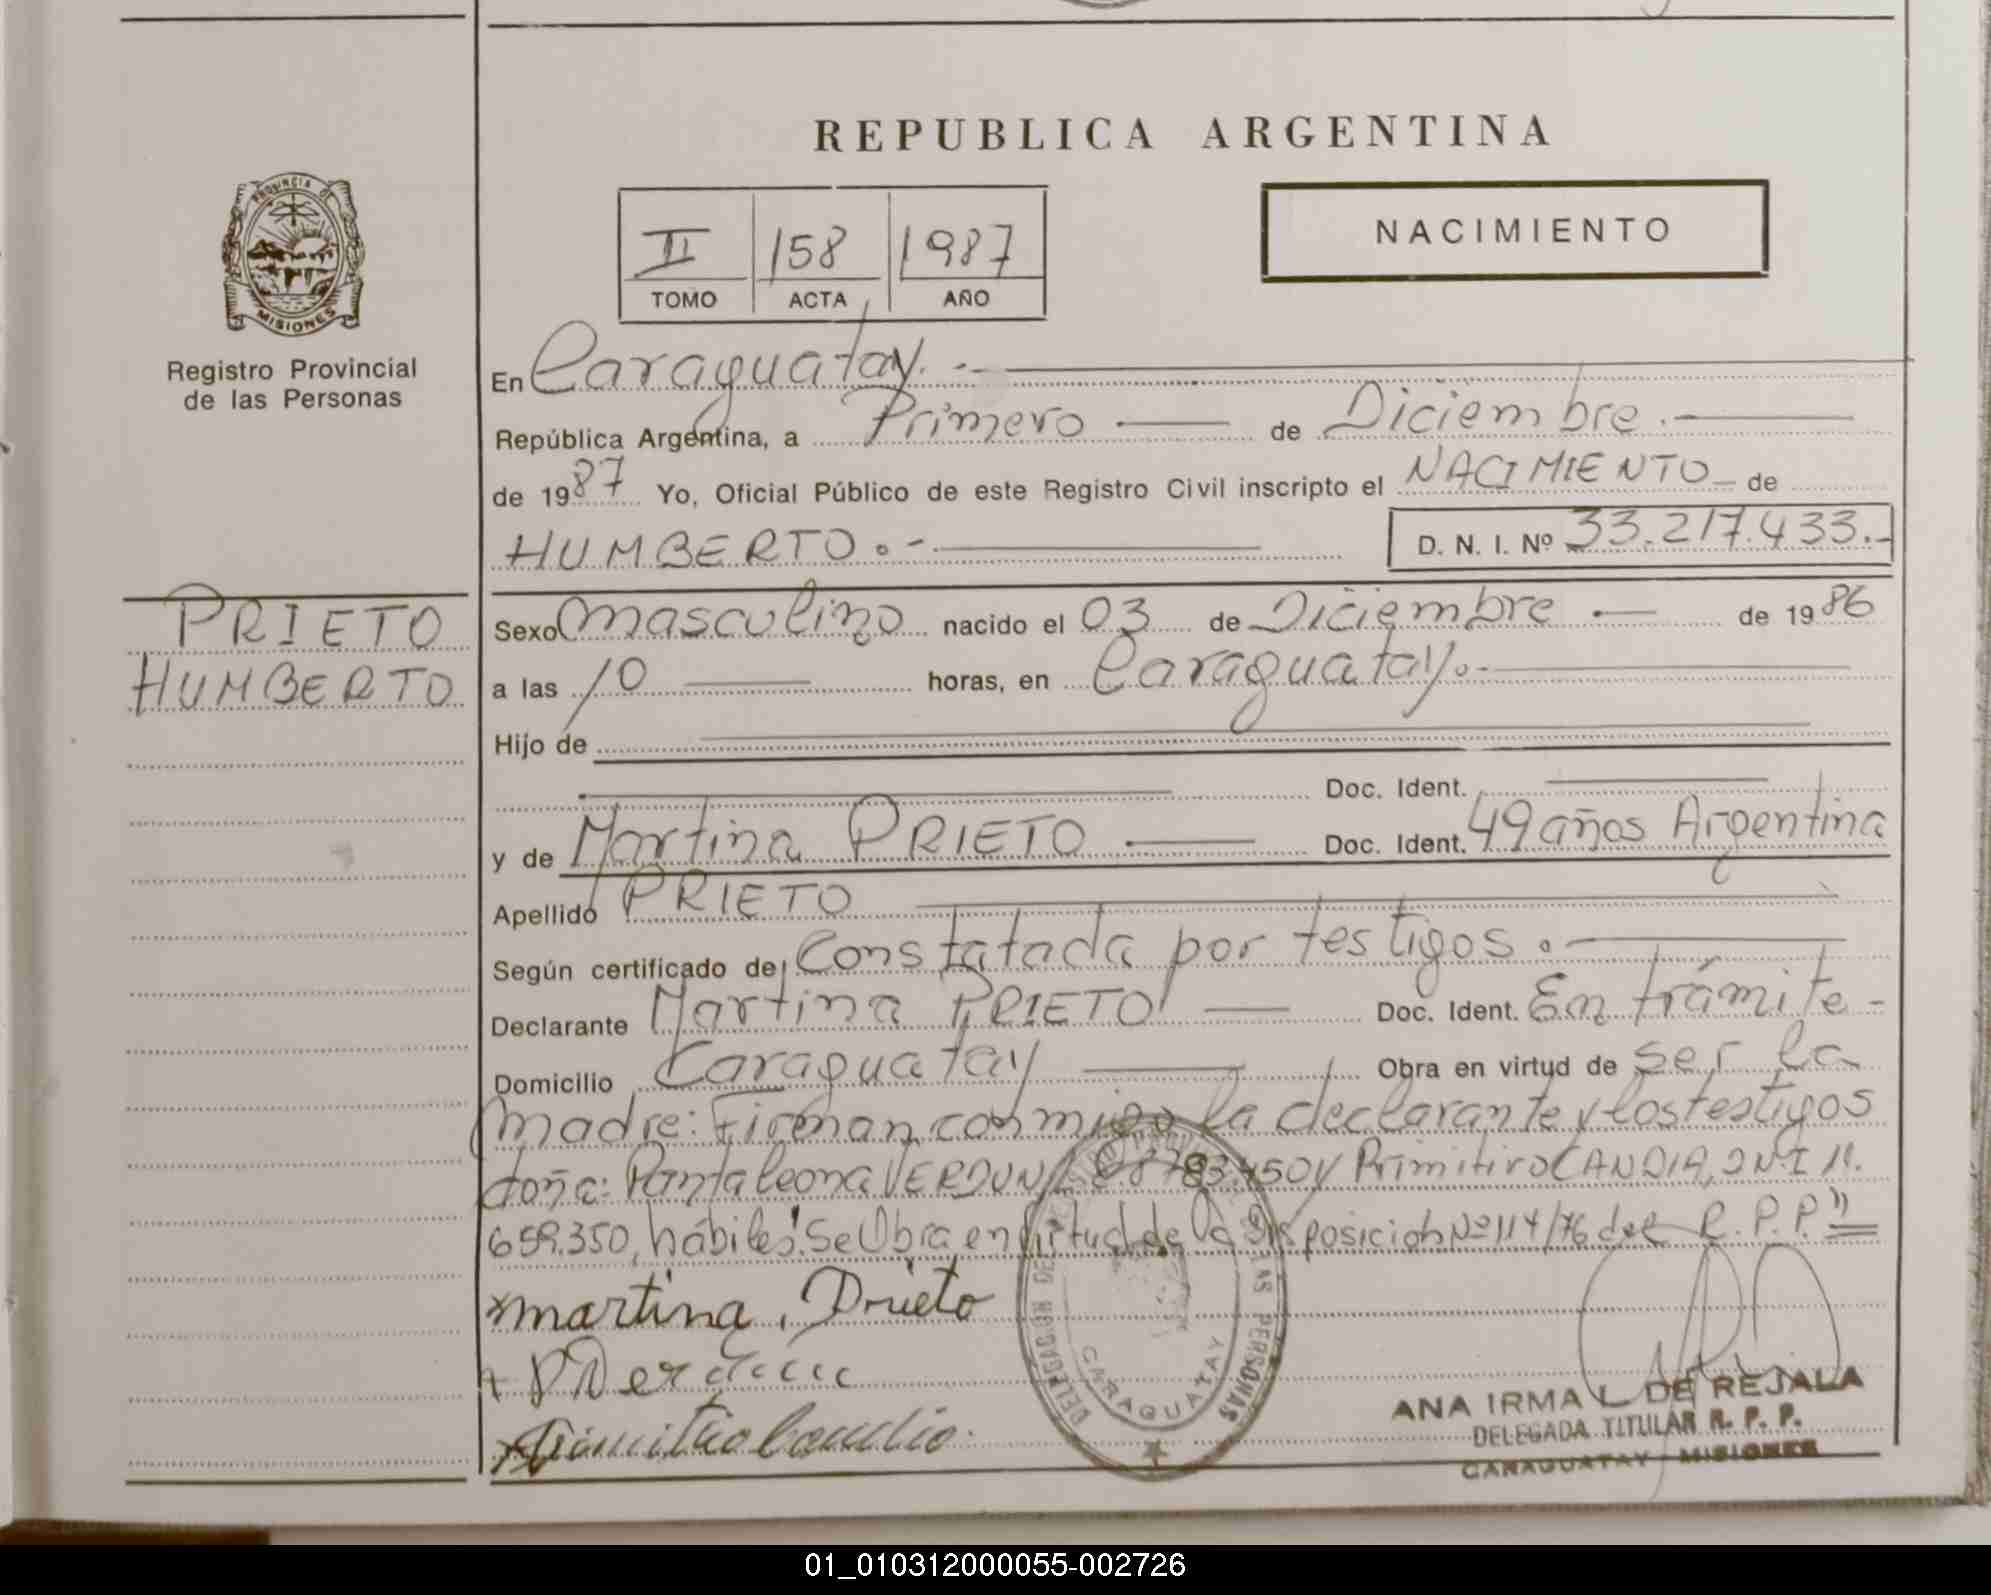 REPUBLICA ARGENTINA
PROVINCIA DE
MISIONES
Registro Provincial
de las Personas
II 158 1987
TOMO ACTA AÑO
NACIMIENTO
En Caraguatay.-
República Argentina, a Primero de Diciembre.-
de 1987 Yo, Oficial Público de este Registro Civil inscripto el NACIMIENTO de
HUMBERTO.- D. N. I. Nº 33.217.433.-
PRIETO
HUMBERTO
Sexo masculino nacido el 03 de Diciembre de 1986
a las 10 horas, en Caraguatay.-
Hijo de
Doc. Ident.
y de Martina PRIETO Doc. Ident. 49 años Argentina
Apellido PRIETO
Según certificado de Constatada por testigos.-
Declarante Martina PRIETO Doc. Ident. En trámite-
Domicilio Caraguatay Obra en virtud de ser la
madre: Firman conmigo la declarante y los testigos
doña: Pantaleona VERDUN y Primitivo CANDIA, DNI 11.
659.350, hábiles. Se Obra en virtud de la Disposición Nº 114/76 del R.P.P."
martina. Prieto
DELEGACION DE LAS PERSONAS
CARAGUATAY
ANA IRMA L. DE REJALA
DELEGADA TITULAR R. P. P.
CARAGUATAY - MISIONES
01_010312000055-002726